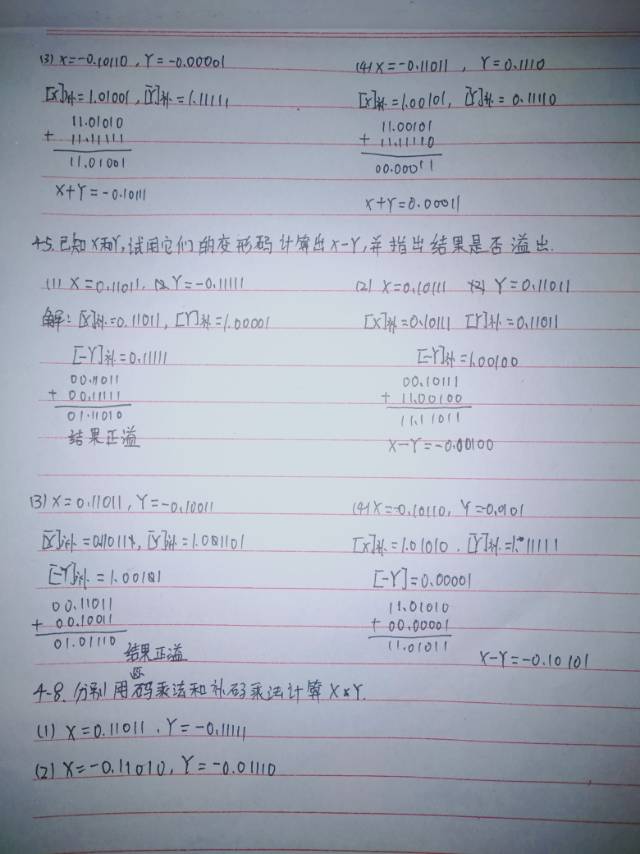 (3) X=-0.10110, Y=-0.00001
[X]补=1.01001, [Y]补=1.11111
11.01010
+ 11.11111
11.01001
X+Y=-0.10111
(4) X=-0.11011, Y=0.1110
[X]补=1.00101, [Y]补=0.11110
11.00101
+ 11.11110
00.00011
X+Y=0.00011
4-5.已知X和Y,试用它们的变形码计算出X-Y,并指出结果是否溢出.
(1) X=0.11011, Y=-0.11111
解: [X]补=0.11011, [Y]补=1.00001
[-Y]补=0.11111
00.11011
+ 00.11111
01.11010
结果正溢
(2) X=0.10111 Y=0.11011
[X]补=0.10111 [Y]补=0.11011
[-Y]补=1.00100
00.10111
+ 11.00100
11.11011
X-Y=-0.00100
(3) X=0.11011, Y=-0.10011
[X]补= [Y]补=1.001101
[-Y]补=
00.11011
+ 00.10011
01.01110
结果正溢
(4) X=-0.10110, Y=
[X]补=1.01010. [Y]补=1.11111
[-Y]=0.00001
11.01010
+ 00.00001
11.01011
X-Y=-0.10101
4-8.分别用原码乘法和补码乘法计算X×Y.
(1) X=0.11011, Y=-0.11111
(2) X=-0.11010, Y=-0.01110